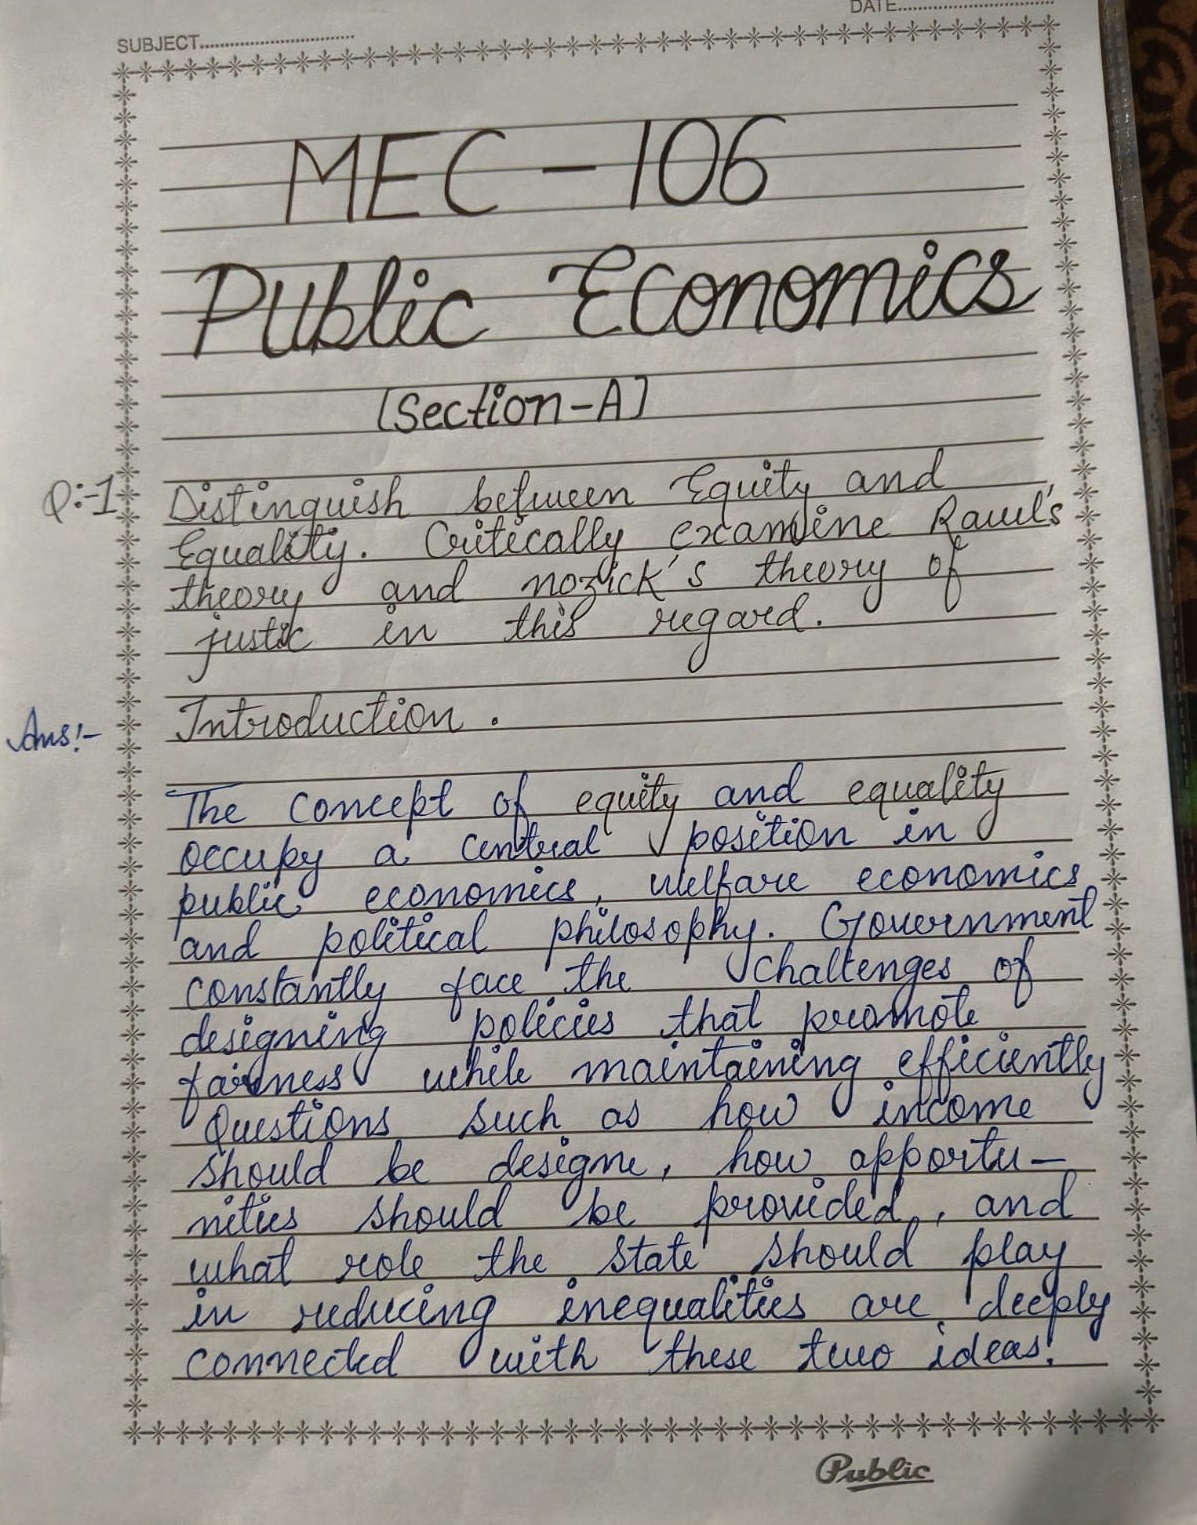 DATE
SUBJECT
MEC-106
Public Economics
[Section-A]
Q:-1 Distinguish between Equity and
Equality. Critically examine Rawl's
theory and nozick's theory of
justic in this regard.
Introduction.
Ans:-
The concept of equity and equality
occupy a central position in
public economics, welfare economics
and political philosophy. Government
constantly face the challenges of
designing policies that promote
fairness while maintaining efficiently
Questions such as how income
should be designe, how opportu-
nities should be provided, and
what role the state should play
in reducing inequalities are deeply
connected with these two ideas.
Public